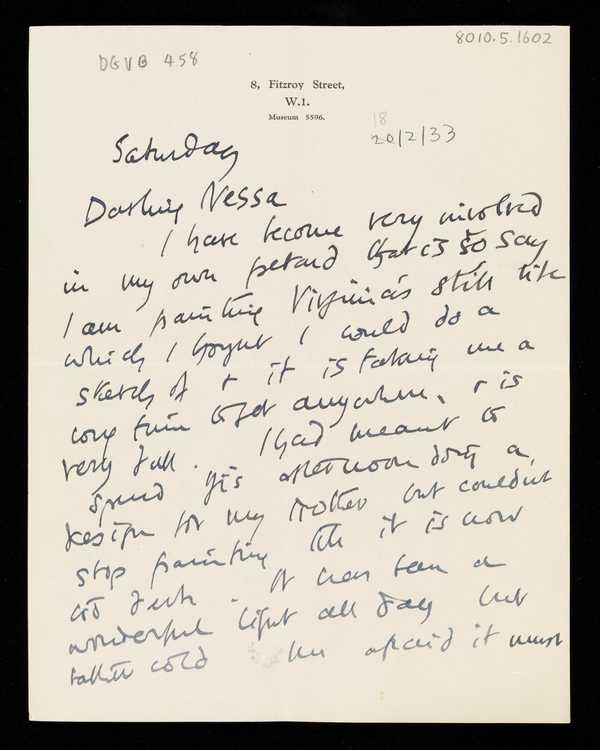 8010.5.1602
DGVB 458
8, Fitzroy Street,
W.1.
Museum 5596.
18
20/2/33
Saturday
Darling Nessa
I have become very involved
in my own petard that is to say
I am painting Virginia's still life
which I thought I could do a
sketch of + it is taking me a
long time to get anywhere, + is
very dull. I had meant to
spend this afternoon doing a
design for my Mother but couldn't
stop painting till it is now
too dark. It has been a
wonderful light all day but
rather cold I'm afraid it must